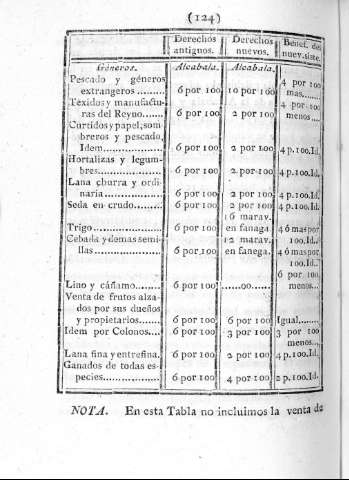 (124)
Derechos antiguos. Derechos nuevos. Benef. del nuev. siste.
Géneros. Alcabala. Alcabala.
Pescado y géneros
extrangeros ......... 6 por 100 10 por 100 4 por 100 mas......
Texidos y manufactu-
ras del Reyno...... 6 por 100 2 por 100 4 por 100 menos....
Curtidos y papel, som-
breros y pescado,
Idem................. 6 por 100 2 por 100 4 p. 100. Id.
Hortalizas y legum-
bres.................. 6 por 100 2 por 100 4 p. 100. Id.
Lana churra y ordi-
naria................. 6 por 100 2 por 100 4 p. 100. Id.
Seda en crudo......... 6 por 100 2 por 100 4 p. 100. Id.
16 marav.
Trigo.................. 6 por 100 en fanega. 4 ó mas por
Cebada y demas semi- 12 marav. 100. Id..
llas.................... 6 por 100 en fanega. 4 ó mas por
100. Id..
6 por 100
Lino y cáñamo........ 6 por 100 ......00...... menos...
Venta de frutos alza-
dos por sus dueños
y propietarios....... 6 por 100 6 por 100 Igual.......
Idem por Colonos.... 6 por 100 3 por 100 3 por 100
menos...
Lana fina y entrefina. 6 por 100 2 por 100 4 p. 100. Id.
Ganados de todas es-
pecies................. 6 por 100 4 por 100 2 p. 100. Id.
NOTA. En esta Tabla no incluimos la venta de